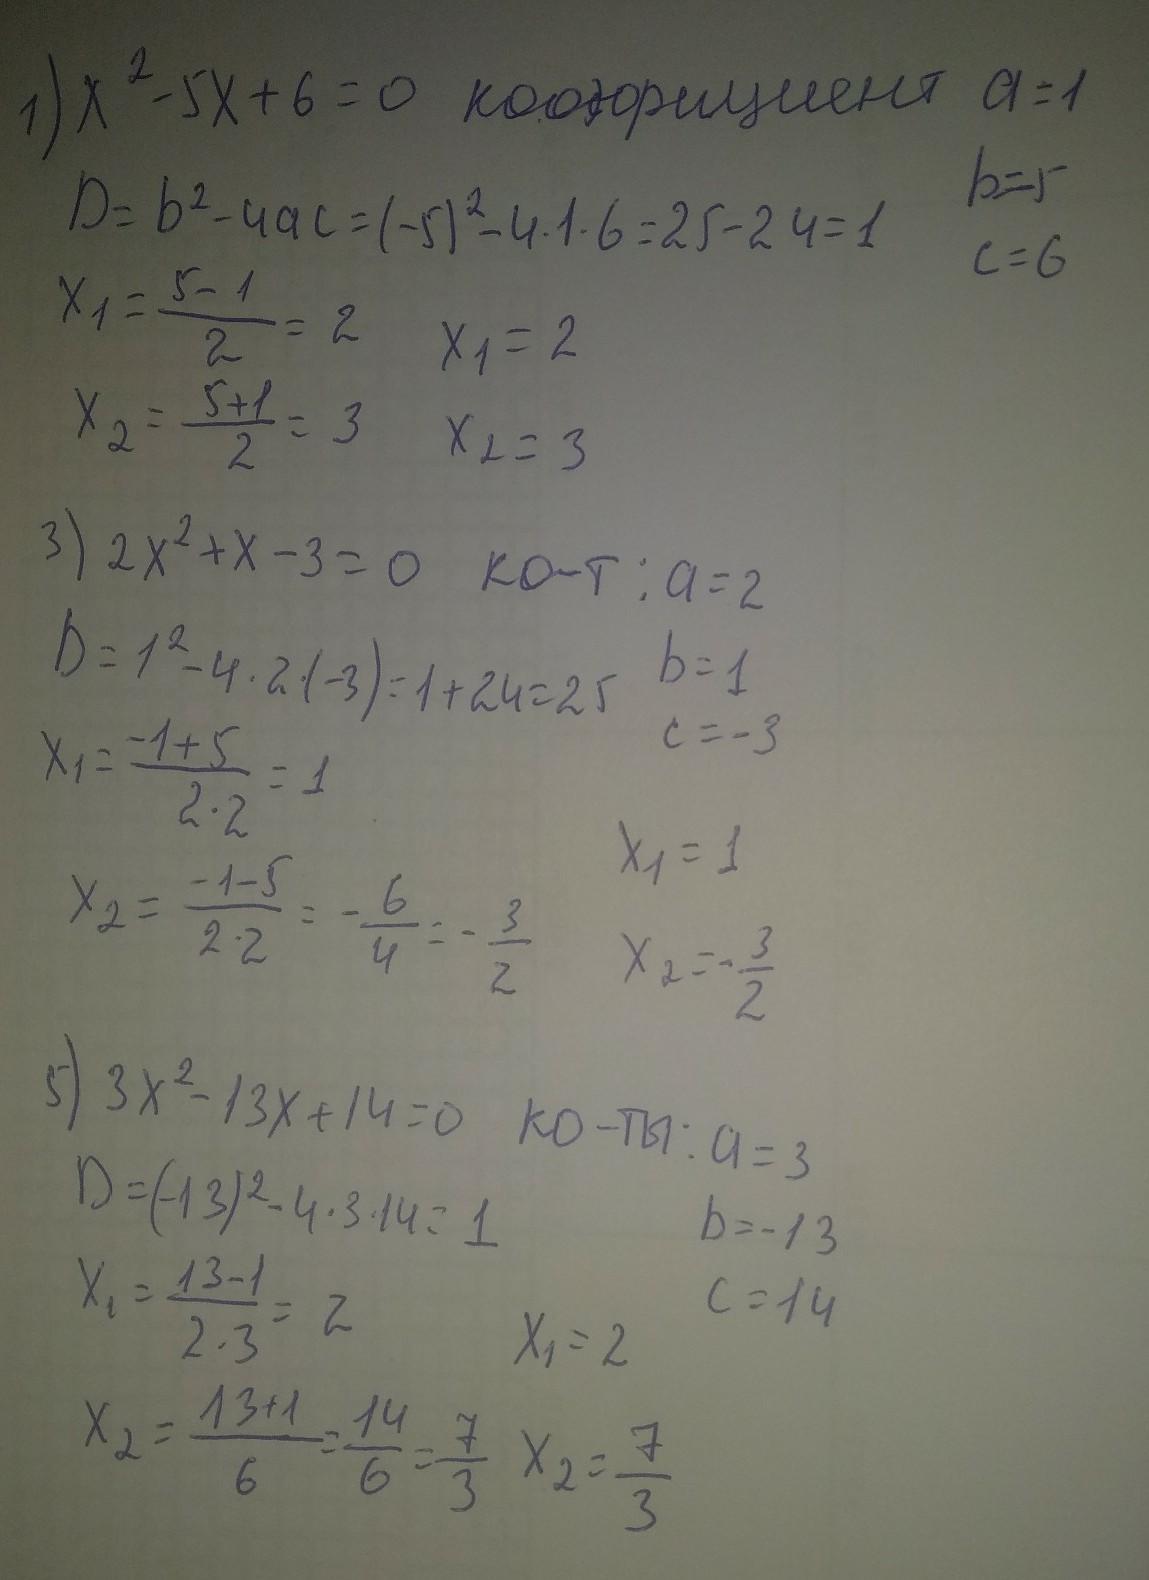 1) x² - 5x + 6 = 0 коэффициент a = 1
b = 5
D = b² - 4ac = (-5)² - 4·1·6 = 25 - 24 = 1
c = 6
x₁ = (5-1)/2 = 2 x₁ = 2
x₂ = (5+1)/2 = 3 x₂ = 3
3) 2x² + x - 3 = 0 ко-т: a = 2
D = 1² - 4·2·(-3) = 1 + 24 = 25 b = 1
c = -3
x₁ = (-1+5)/(2·2) = 1
x₁ = 1
x₂ = (-1-5)/(2·2) = -6/4 = -3/2 x₂ = -3/2
5) 3x² - 13x + 14 = 0 ко-ты: a = 3
D = (-13)² - 4·3·14 = 1 b = -13
c = 14
x₁ = (13-1)/(2·3) = 2 x₁ = 2
x₂ = (13+1)/6 = 14/6 = 7/3 x₂ = 7/3